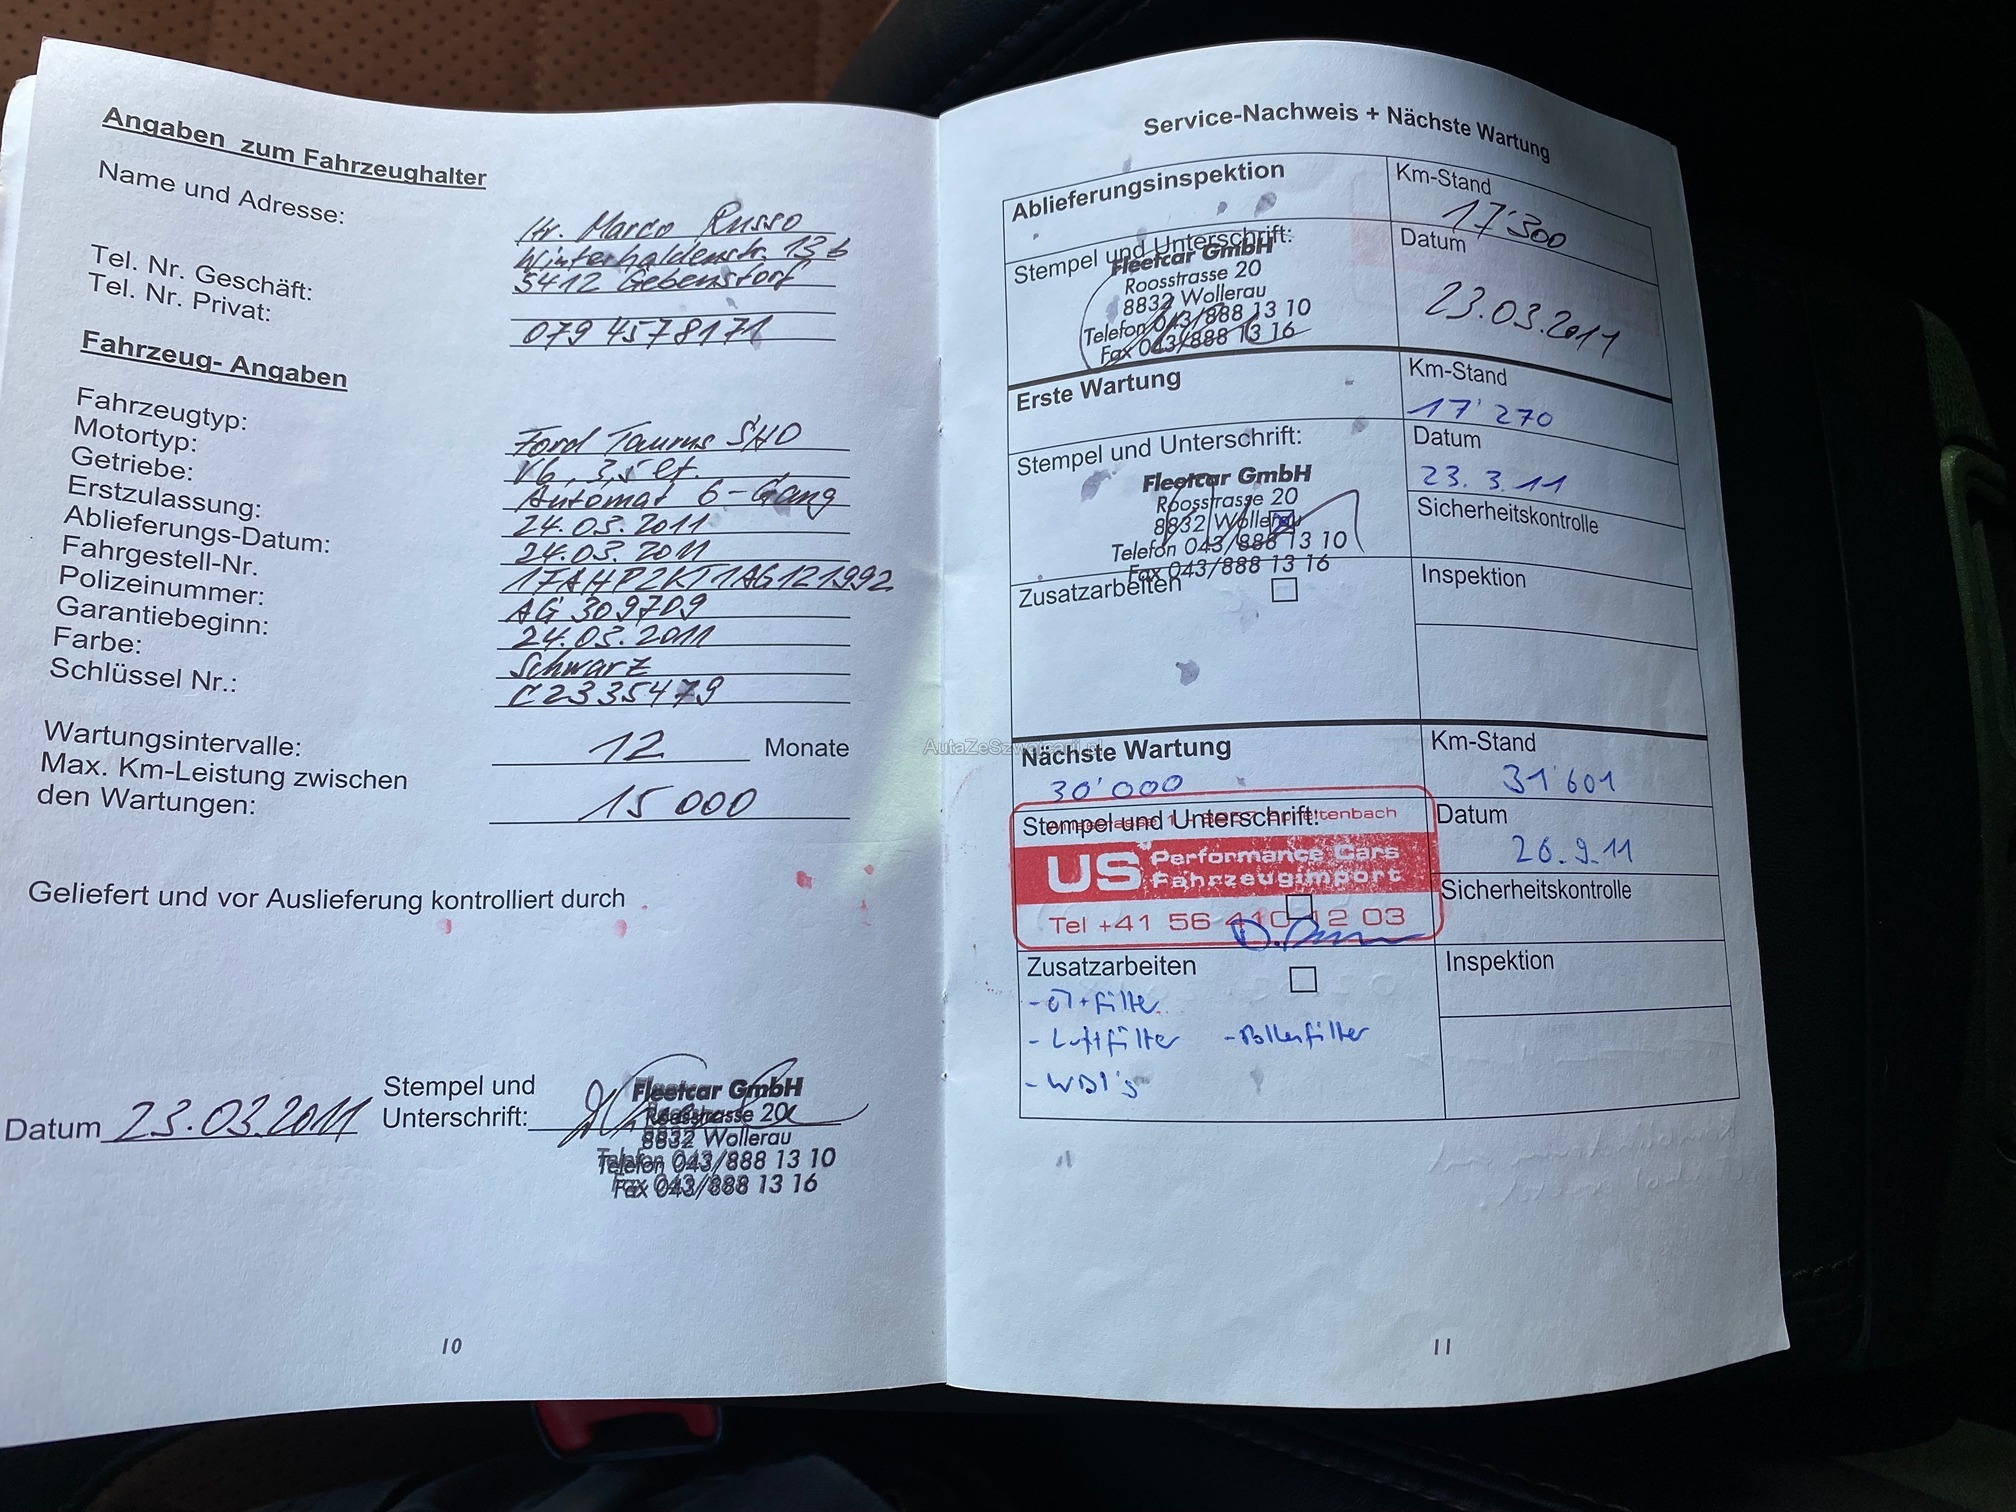 Angaben zum Fahrzeughalter
Name und Adresse:
Hr. Marco Russo
Winterhaldenstr. 13b
5412 Gebenstorf
Tel. Nr. Geschäft:
Tel. Nr. Privat: 079 4578171
Fahrzeug- Angaben
Fahrzeugtyp: Ford Taurus SHO
Motortyp: V6, 3,5 lt.
Getriebe: Automat 6-Gang
Erstzulassung: 24.03.2011
Ablieferungs-Datum: 24.03.2011
Fahrgestell-Nr. 1FAHP2KT1AG121992
Polizeinummer: AG 309709
Garantiebeginn: 24.03.2011
Farbe: Schwarz
Schlüssel Nr.: C2335479
Wartungsintervalle: 12 Monate
Max. Km-Leistung zwischen
den Wartungen: 15 000
Geliefert und vor Auslieferung kontrolliert durch
Datum 23.03.2011
Stempel und
Unterschrift:
Fleetcar GmbH
Roosstrasse 20
8832 Wollerau
Telefon 043/888 13 10
Fax 043/888 13 16
10
Service-Nachweis + Nächste Wartung
Ablieferungsinspektion
Km-Stand
17'300
Stempel und Unterschrift:
Fleetcar GmbH
Roosstrasse 20
8832 Wollerau
Telefon 043/888 13 10
Fax 043/888 13 16
Datum
23.03.2011
Erste Wartung
Km-Stand
17'270
Stempel und Unterschrift:
Fleetcar GmbH
Roosstrasse 20
8832 Wollerau
Telefon 043/888 13 10
Fax 043/888 13 16
Datum
23.3.11
Sicherheitskontrolle
Zusatzarbeiten
Inspektion
AutaZeSzwajcarii.pl
Nächste Wartung
30'000
Km-Stand
31'601
Stempel und Unterschrift:
US Performance Cars
Fahrzeugimport
Tel +41 56 410 12 03
Datum
26.9.11
Sicherheitskontrolle
Zusatzarbeiten
Inspektion
- Öl+Filter
- Luftfilter - Pollenfilter
11